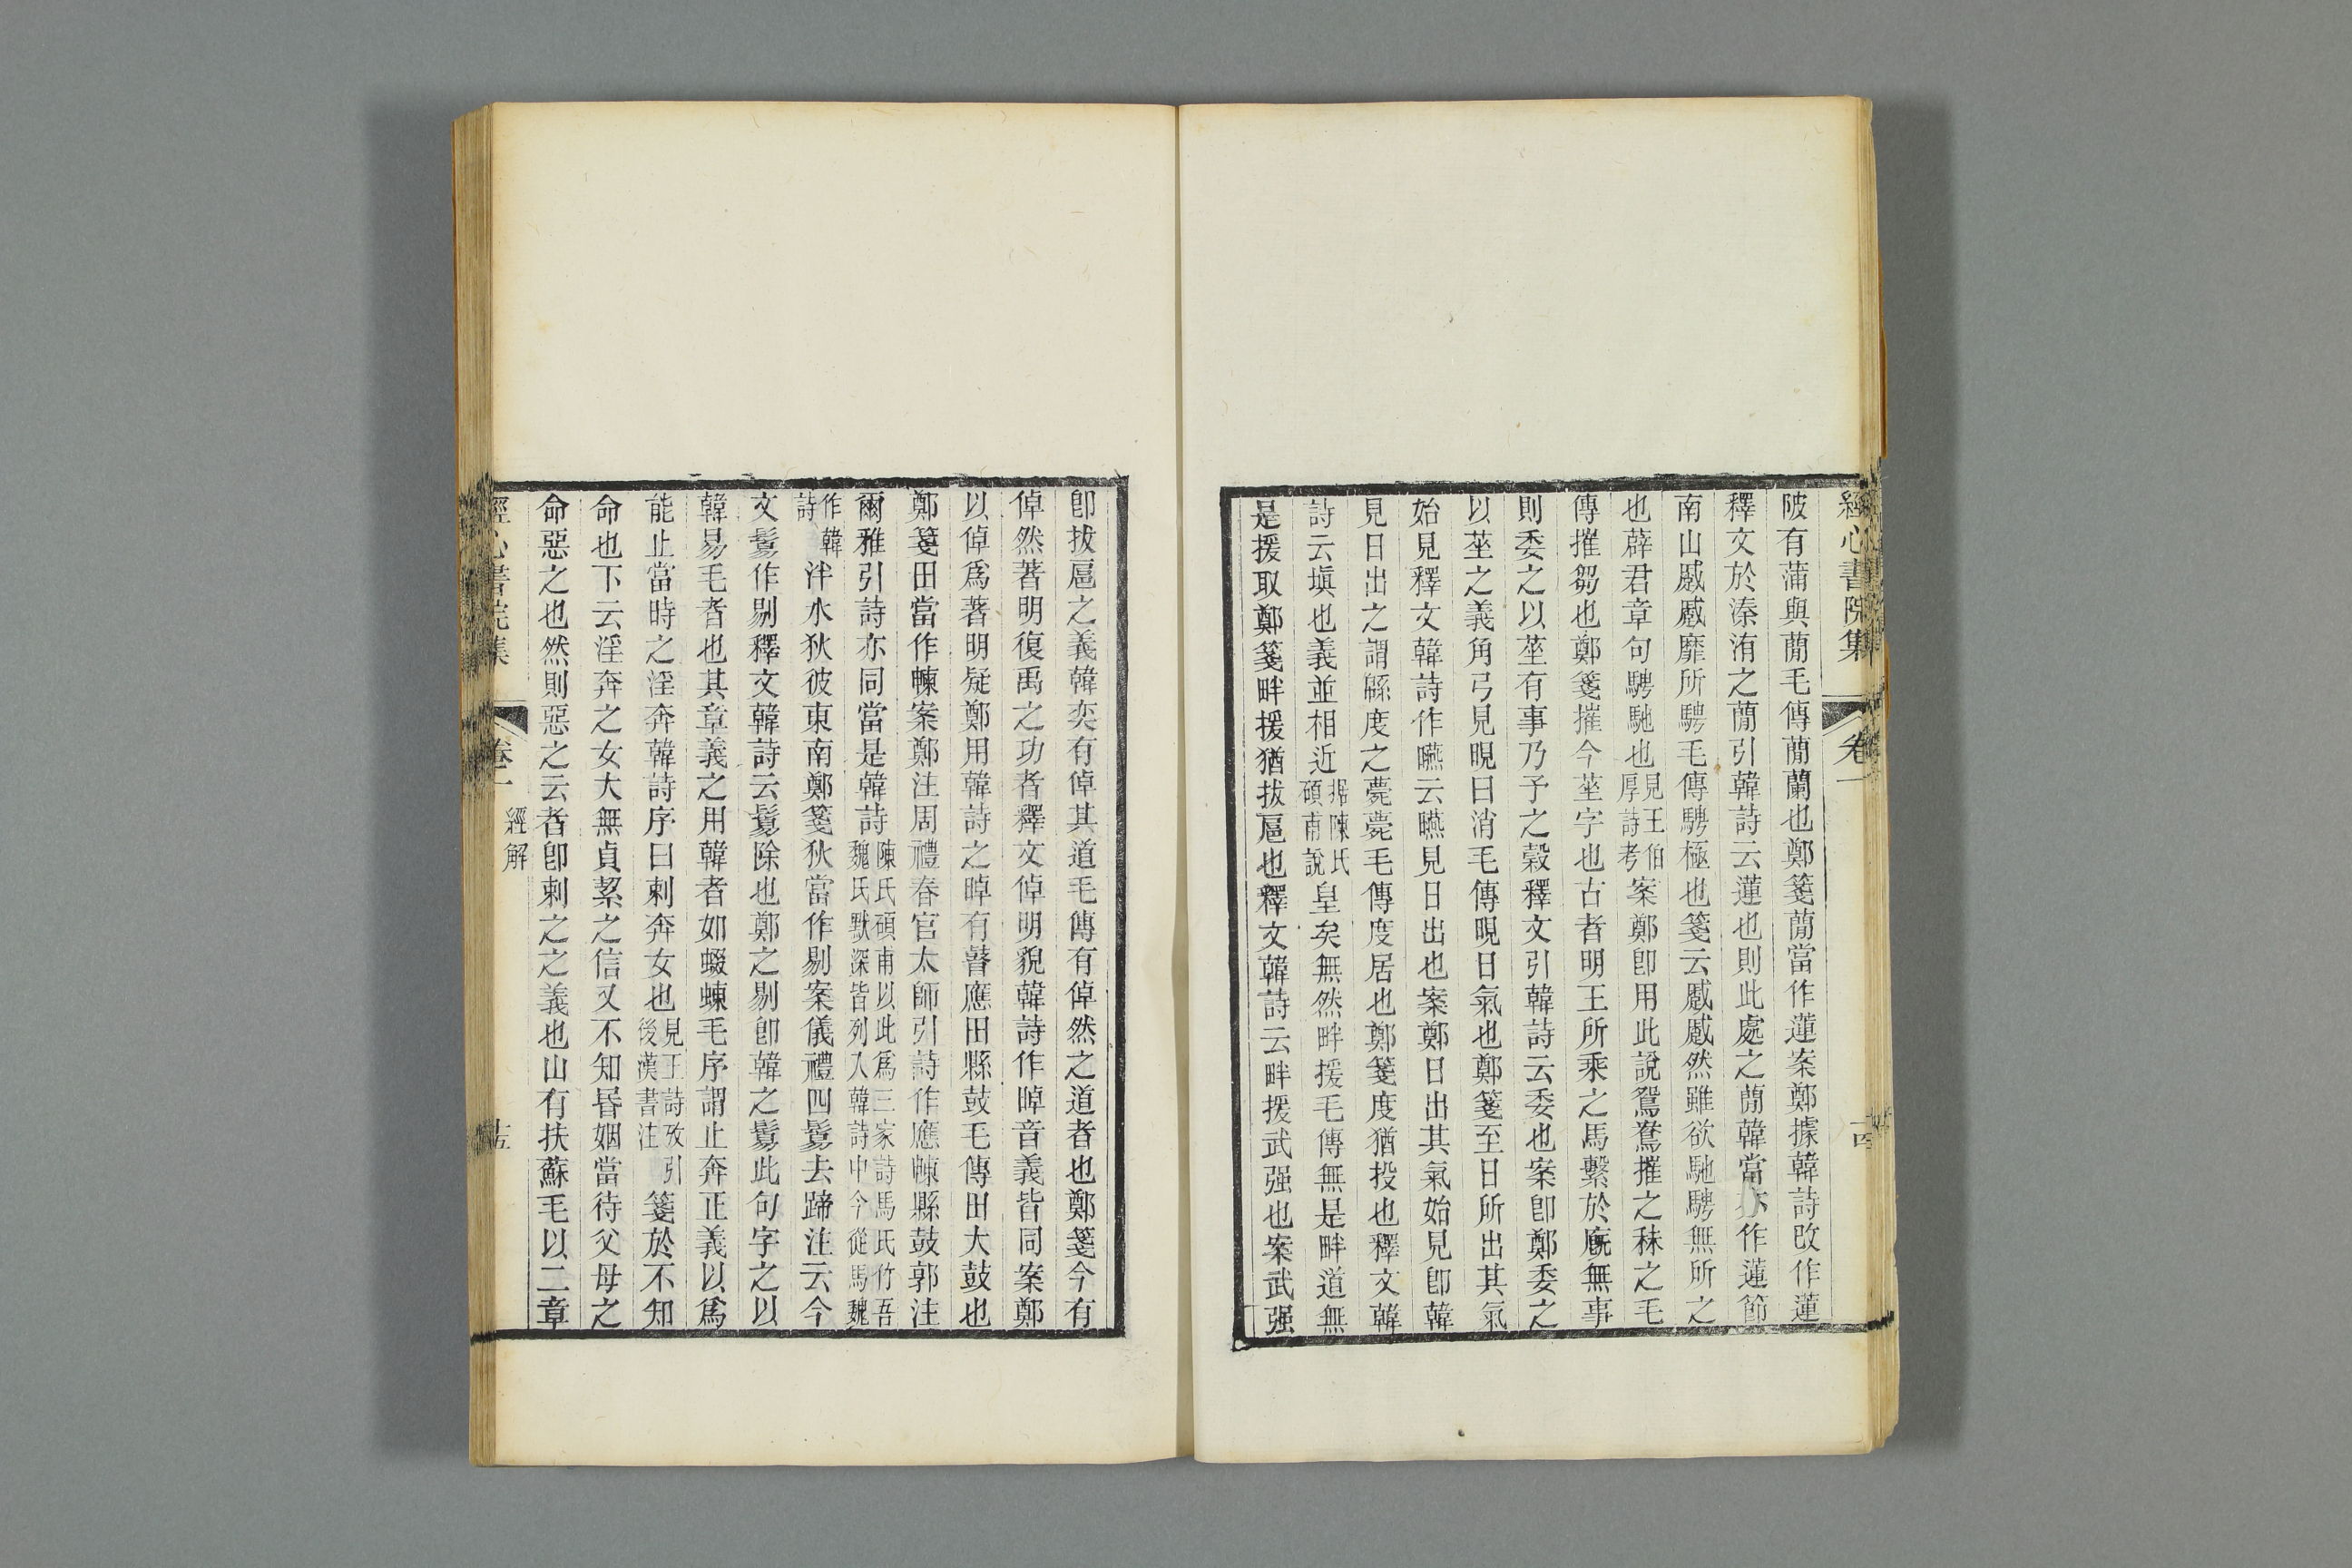 經心書院集 卷一 十四
陂有蒲與蕑毛傳蕑蘭也鄭箋蕑當作蓮案鄭據韓詩改作蓮
釋文於溱洧之蕑引韓詩云蓮也則此處之蕑韓當亦作蓮節
南山蹙蹙靡所騁毛傳騁極也箋云蹙蹙然雖欲馳騁無所之
也薛君章句騁馳也見王伯厚詩考案鄭卽用此說鴛鴦摧之秣之毛
傳摧芻也鄭箋摧今莝字也古者明王所乘之馬繫於廐無事
則委之以莝有事乃予之穀釋文引韓詩云委也案卽鄭委之
以莝之義角弓見晛曰消毛傳晛日氣也鄭箋至日所出其氣
始見釋文韓詩作曣云曣見日出也案鄭日出其氣始見卽韓
見日出之謂緜度之薨薨毛傳度居也鄭箋度猶投也釋文韓
詩云塡也義並相近据陳氏碩甫說皇矣無然畔援毛傳無是畔道無
是援取鄭箋畔援猶拔扈也釋文韓詩云畔援武强也案武强
卽拔扈之義韓奕有倬其道毛傳有倬然之道者也鄭箋今有
倬然著明復禹之功者釋文倬明貌韓詩作晫音義皆同案鄭
以倬爲著明疑鄭用韓詩之晫有瞽應田縣鼓毛傳田大鼓也
鄭箋田當作朄案鄭注周禮春官太師引詩作應朄縣鼓郭注
爾雅引詩亦同當是韓詩陳氏碩甫以此爲三家詩馬氏竹吾魏氏默深皆列入韓詩中今從馬魏
作韓詩泮水狄彼東南鄭箋狄當作剔案儀禮四鬄去蹄注云今
文鬄作剔釋文韓詩云鬄除也鄭之剔卽韓之鬄此句字之以
韓易毛者也其章義之用韓者如蝃蝀毛序謂止奔正義以爲
能止當時之淫奔韓詩序曰刺奔女也見王詩攷引後漢書注箋於不知
命也下云淫奔之女大無貞絜之信又不知昏姻當待父母之
命惡之也然則惡之云者卽刺之之義也山有扶蘇毛以二章
經心書院集 卷一 經解 十五